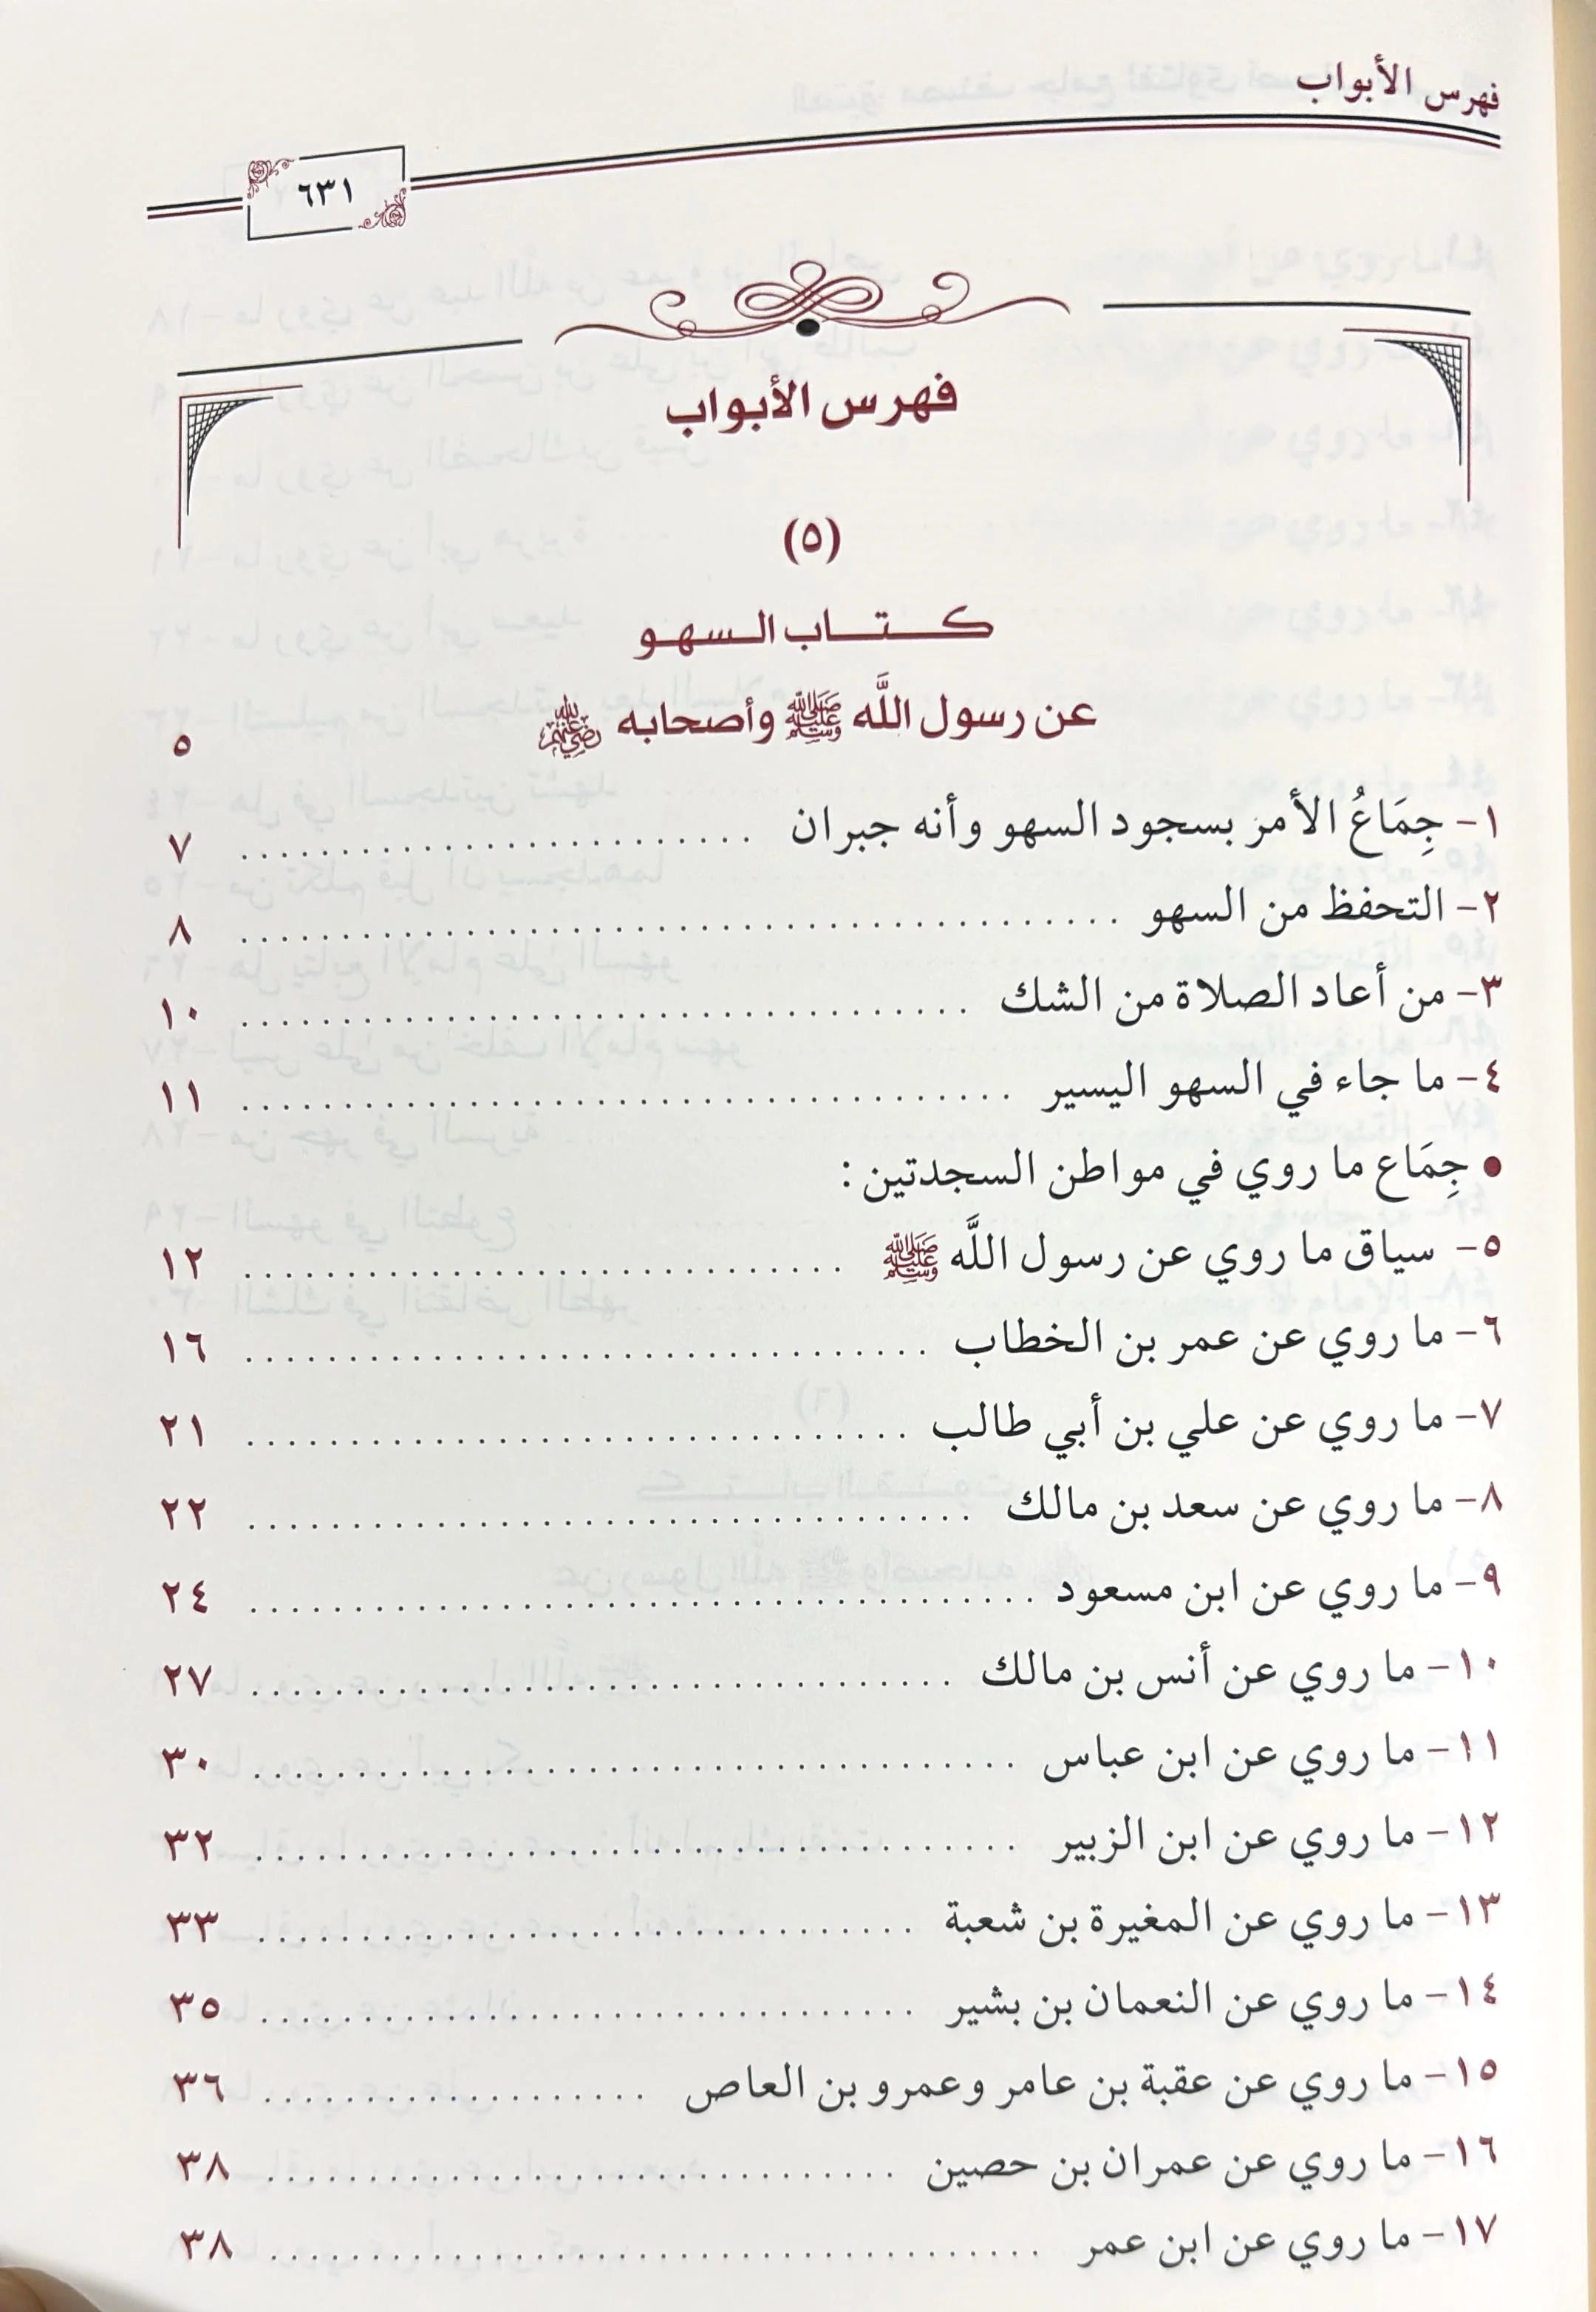 فهرس الأبواب
٦٣١
فهرس الأبواب
(٥)
كتاب السهو
عن رسول اللَّه ﷺ وأصحابه رضي الله عنهم ٥
١- جِمَاعُ الأمر بسجود السهو وأنه جبران ........................ ٧
٢- التحفظ من السهو ........................ ٨
٣- من أعاد الصلاة من الشك ........................ ١٠
٤- ما جاء في السهو اليسير ........................ ١١
• جِمَاع ما روي في مواطن السجدتين:
٥- سياق ما روي عن رسول اللَّه ﷺ ........................ ١٢
٦- ما روي عن عمر بن الخطاب ........................ ١٦
٧- ما روي عن علي بن أبي طالب ........................ ٢١
٨- ما روي عن سعد بن مالك ........................ ٢٢
٩- ما روي عن ابن مسعود ........................ ٢٤
١٠- ما روي عن أنس بن مالك ........................ ٢٧
١١- ما روي عن ابن عباس ........................ ٣٠
١٢- ما روي عن ابن الزبير ........................ ٣٢
١٣- ما روي عن المغيرة بن شعبة ........................ ٣٣
١٤- ما روي عن النعمان بن بشير ........................ ٣٥
١٥- ما روي عن عقبة بن عامر وعمرو بن العاص ........................ ٣٦
١٦- ما روي عن عمران بن حصين ........................ ٣٨
١٧- ما روي عن ابن عمر ........................ ٣٨